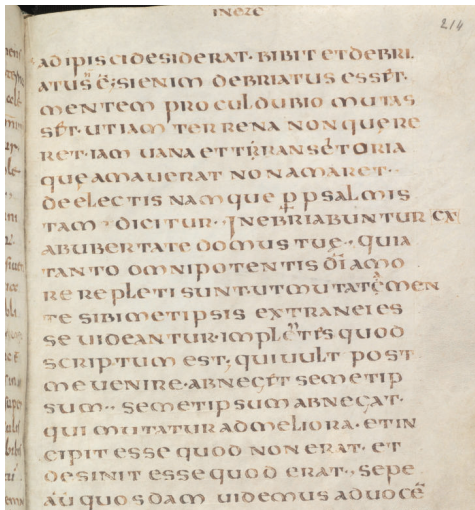 IN EZE
214
adipisci desiderat. bibit et debri
atus ē; si enim debriatus esset.
mentem procul dubio mutas
set. ut iam terrena non quere
ret. iam uana et transetoria
que amauerat non amaret.
de electis namque p̲ psalmis
tam dicitur. Inebriabuntur ex
abubertate domus tuę. quia
tanto omnipotentis dī amo
re repleti sunt. ut mutatę men
te sibimetipsis extranei es
se uideantur. implentes quod
scriptum est; qui uult post
me uenire. abneget semetip
sum. semetipsum abnegat.
qui mutatur ad meliora. et in
cipit esse quod non erat. et
desinit esse quod erat. sepe
aū quosdam uidemus ad uocē